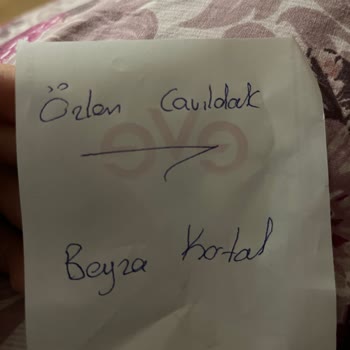 Özlen Cavıldak
eve
Beyza Kortal